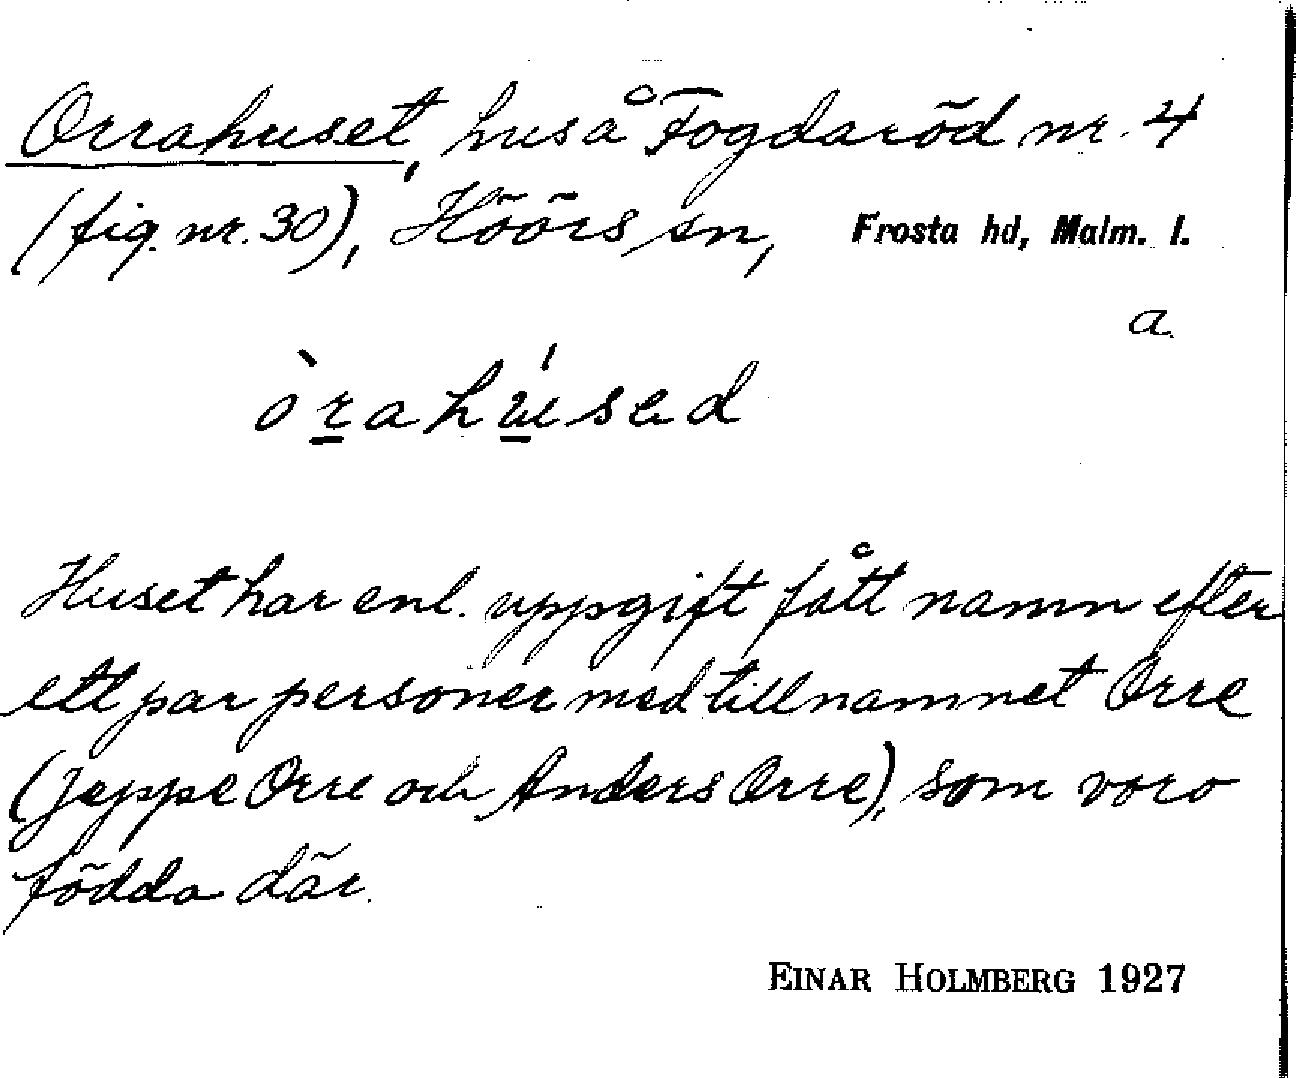 Orrahuset, hus å Fogdaröd nr. 4
(fig. nr. 30), Höörs sn, Frosta hd, Malm. l.
a.
òrahúsəd
Huset har enl. uppgift fått namn efter
ett par personer med tillnamnet Orre
(Jeppe Orre och Anders Orre), som voro
födda där.
EINAR HOLMBERG 1927